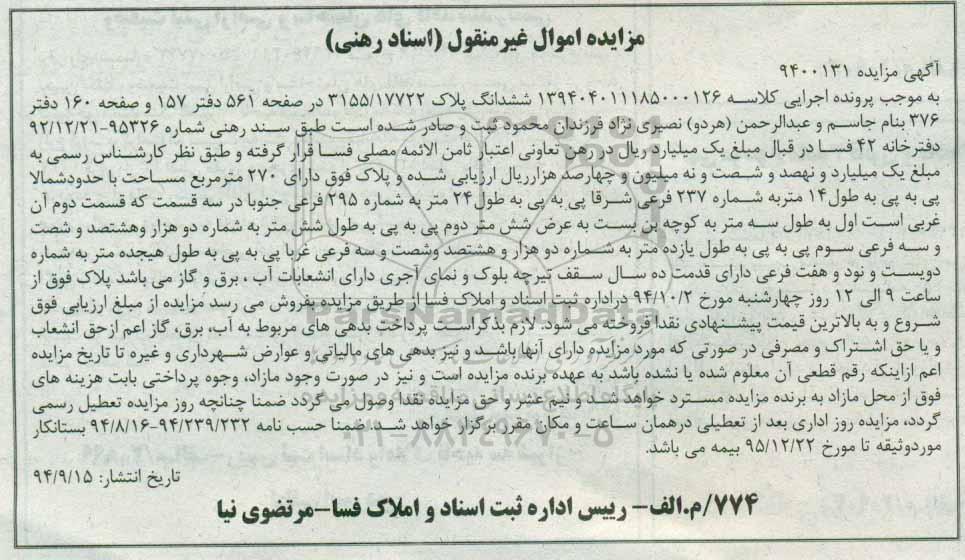 مزایده اموال غیرمنقول (اسناد رهنی)
آگهی مزایده ۹۴۰۰۱۳۱
به موجب پرونده اجرایی کلاسه ۱۳۹۴۰۴۰۱۱۱۸۵۰۰۰۱۲۶ ششدانگ پلاک ۳۱۵۵/۱۷۷۲۲ در صفحه ۵۶۱ دفتر ۱۵۷ و صفحه ۱۶۰ دفتر
۳۷۶ بنام جاسم و عبدالرحمن (هردو) نصیری نژاد فرزندان محمود ثبت و صادر شده است طبق سند رهنی شماره ۹۵۳۲۶-۹۲/۱۲/۲۱
دفترخانه ۴۲ فسا در قبال مبلغ یک میلیارد ریال در رهن تعاونی اعتبار ثامن الائمه مصلی فسا قرار گرفته و طبق نظر کارشناس رسمی به
مبلغ یک میلیارد و نهصد و شصت و نه میلیون و چهارصد هزارریال ارزیابی شده و پلاک فوق دارای ۲۷۰ مترمربع مساحت با حدودشمالا
پی به پی به طول۱۴ متربه شماره ۲۳۷ فرعی شرقا پی به پی به طول۲۴ متر به شماره ۲۹۵ فرعی جنوبا در سه قسمت که قسمت دوم آن
غربی است اول به طول سه متر به کوچه بن بست به عرض شش متر دوم پی به پی به طول شش متر به شماره دو هزار وهشتصد و شصت
و سه فرعی سوم پی به پی به طول یازده متر به شماره دو هزار و هشتصد وشصت و سه فرعی غربا پی به پی به طول هیجده متر به شماره
دویست و نود و هفت فرعی دارای قدمت ده سال سقف تیرچه بلوک و نمای آجری دارای انشعابات آب ، برق و گاز می باشد پلاک فوق از
ساعت ۹ الی ۱۲ روز چهارشنبه مورخ ۹۴/۱۰/۲ دراداره ثبت اسناد و املاک فسا از طریق مزایده بفروش می رسد مزایده از مبلغ ارزیابی فوق
شروع و به بالاترین قیمت پیشنهادی نقدا فروخته می شود. لازم بذکراست پرداخت بدهی های مربوط به آب، برق، گاز اعم ازحق انشعاب
و یا حق اشتراک و مصرفی در صورتی که مورد مزایده دارای آنها باشد و نیز بدهی های مالیاتی و عوارض شهرداری و غیره تا تاریخ مزایده
اعم ازاینکه رقم قطعی آن معلوم شده یا نشده باشد به عهده برنده مزایده است و نیز در صورت وجود مازاد، وجوه پرداختی بابت هزینه های
فوق از محل مازاد به برنده مزایده مسترد خواهد شد و نیم عشر و حق مزایده نقدا وصول می گردد ضمنا چنانچه روز مزایده تعطیل رسمی
گردد، مزایده روز اداری بعد از تعطیلی درهمان ساعت و مکان مقرر برگزار خواهد شد. ضمنا حسب نامه ۹۴/۲۳۹/۲۳۲-۹۴/۸/۱۶ بستانکار
موردوثیقه تا مورخ ۹۵/۱۲/۲۲ بیمه می باشد.
تاریخ انتشار: ۹۴/۹/۱۵
۷۷۴/م.الف- رییس اداره ثبت اسناد و املاک فسا-مرتضوی نیا
ParsNamadData
۰۲۱-۸۸۳۴۹۶۷۰-۵